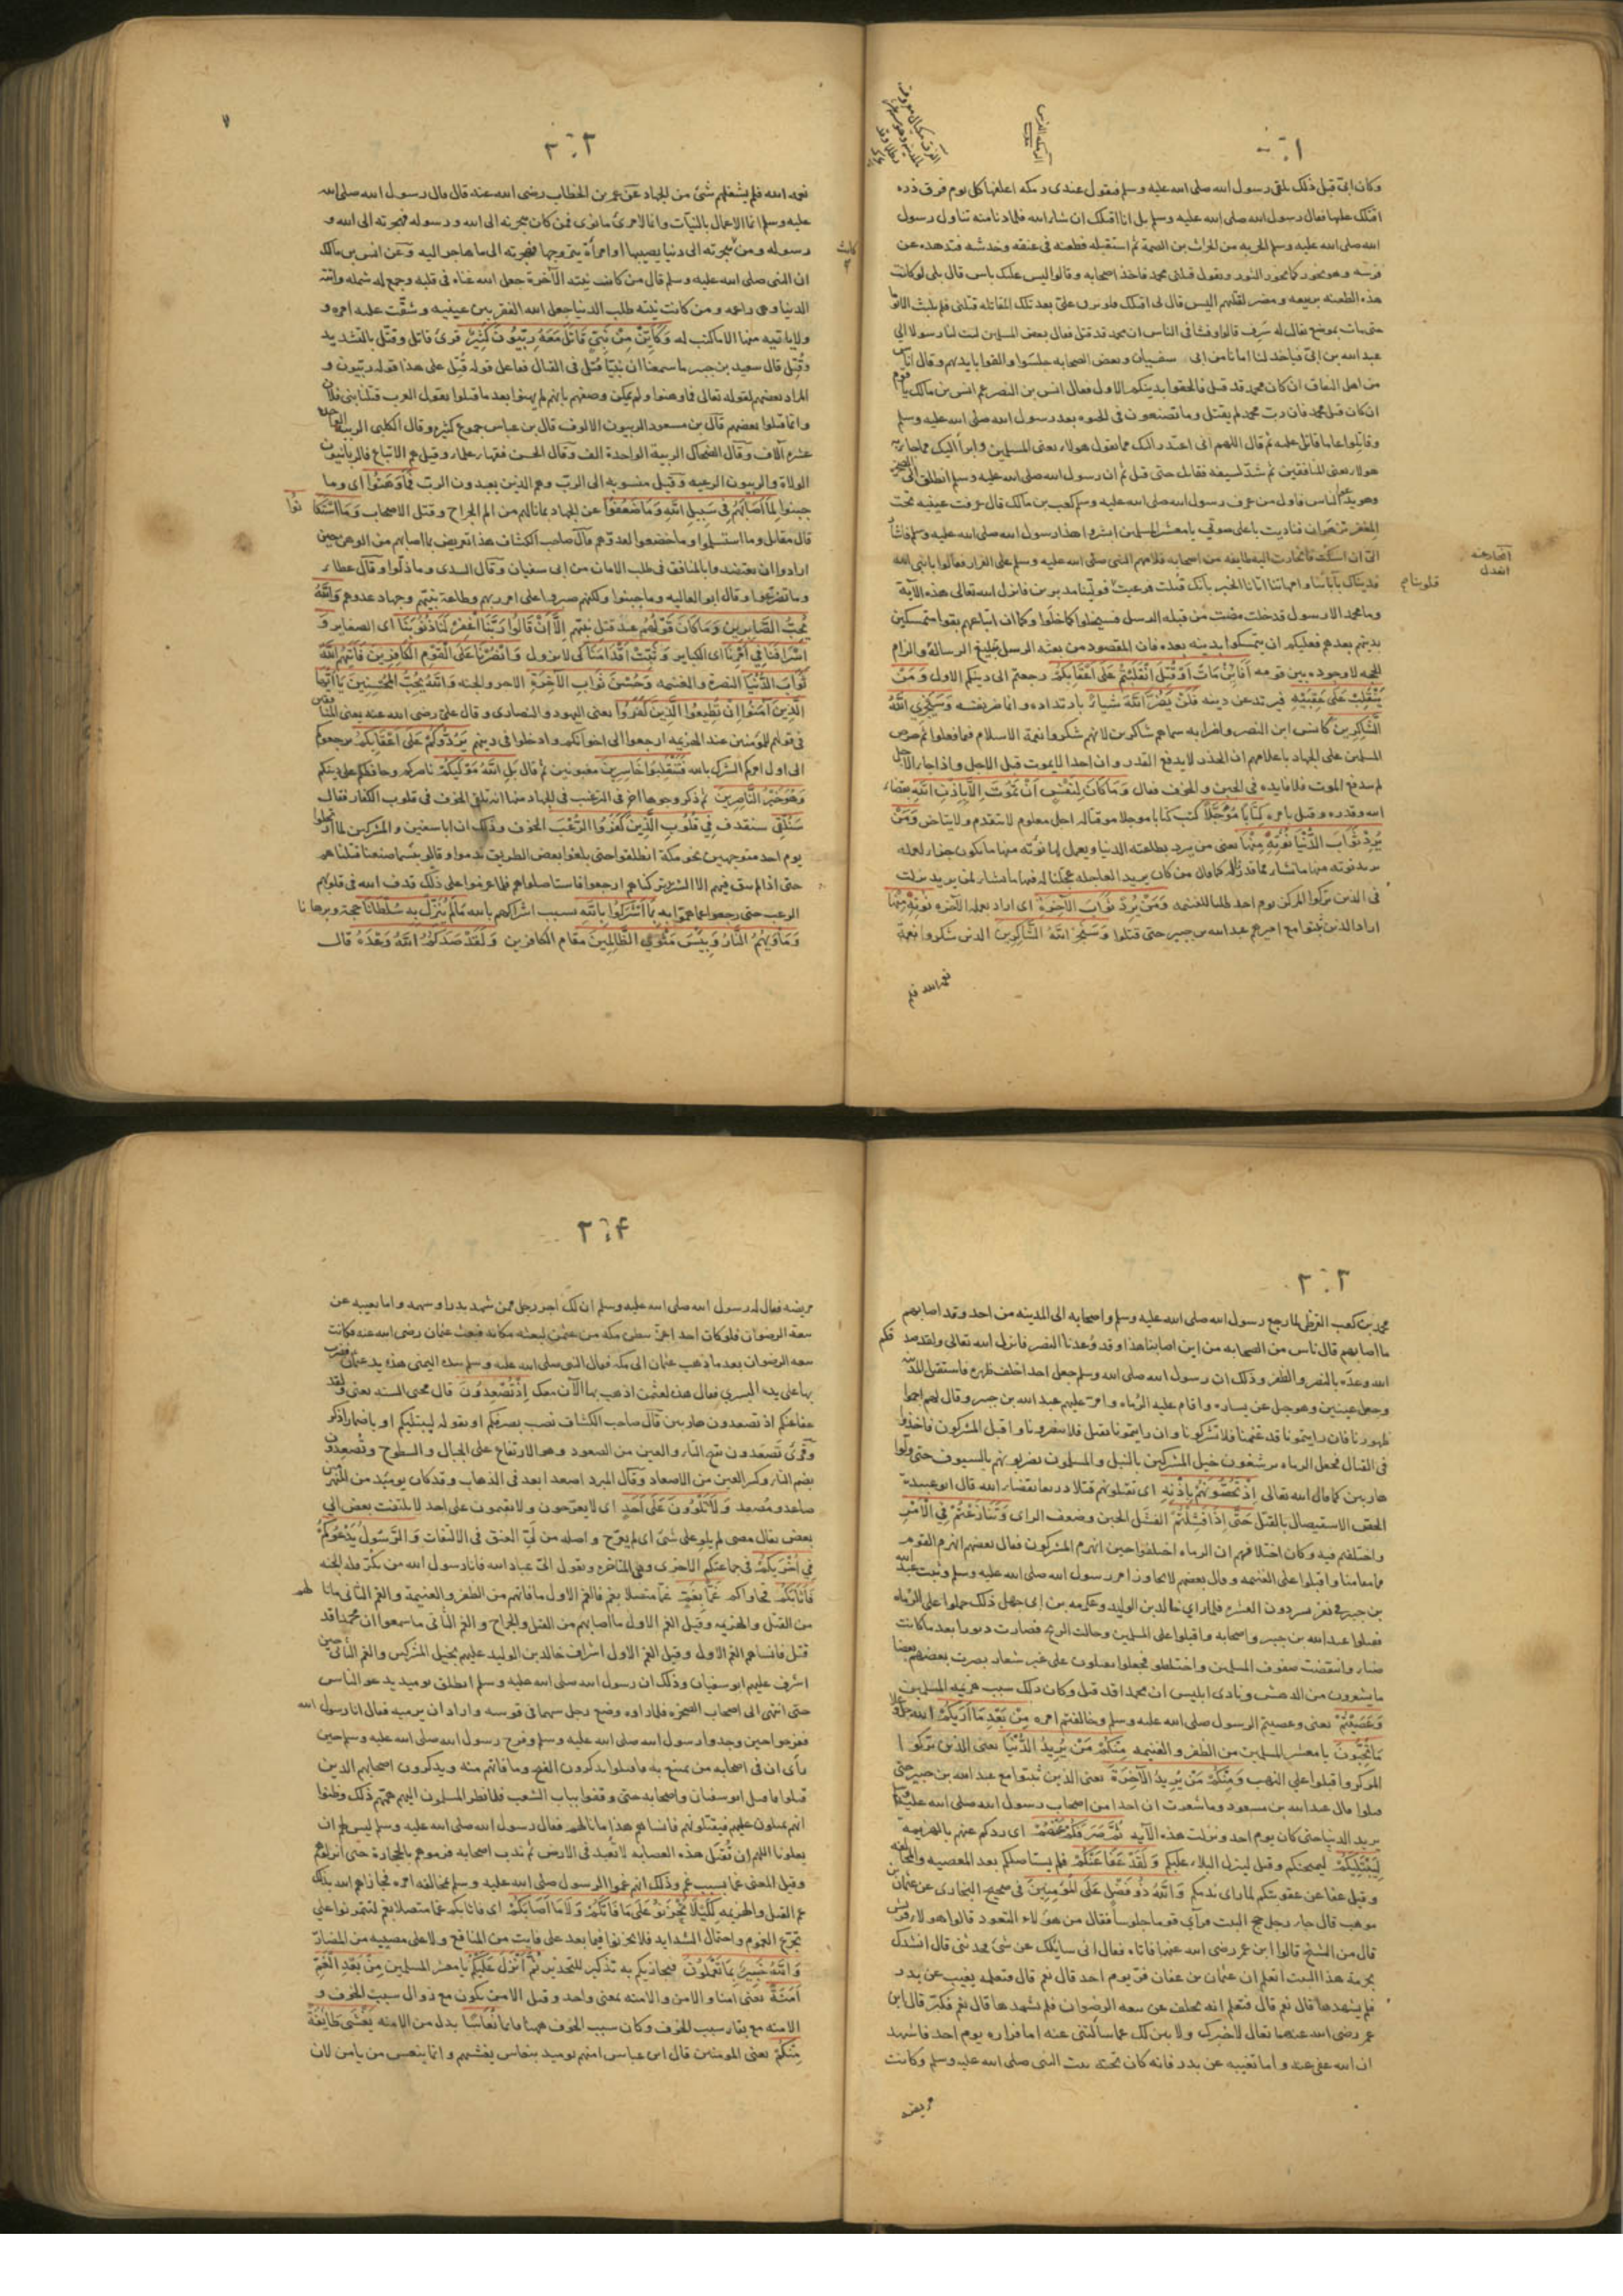 وكان ابي قبل ذلك يلقى رسول الله صلى الله عليه وسلم فيقول عندى رمكه اعلفها كل يوم فرق ذره
اقتلك عليها فقال رسول الله صلى الله عليه وسلم بل انا اقتلك ان شاء الله فلما دنا منه تناول رسول
الله صلى الله عليه وسلم الحربه من الحارث بن الصمة ثم استقبله فطعنه فى عنقه وخدشه فتدهده عن
فرسه وهو يخور كما يخور الثور ويقول قتلنى محمد فاخذ اصحابه وقالوا ليس عليك باس قال بلى لو كانت
هذه الطعنه بربيعه ومضر لقتلهم اليس قال لى اقتلك فلو بزق علىّ بعد تلك المقاله قتلنى فلم يلبث الا يوما
حتى مات بموضع يقال له سَرِف قالوا وفشا فى الناس ان محمد قد قتل فقال بعض المسلمين ليت لنا رسولا الى
عبد الله بن ابىّ فياخذ لنا امانا من ابى سفيان وبعض الصحابه جلسوا والقوا بايديهم وقال اناس
من اهل النفاق ان كان محمد قد قتل فالحقوا بدينكم الاول فقال انس بن النضر عم انس بن مالك يا قوم
ان كان قتل محمد فان رب محمد لم يقتل وما تصنعون فى الحيوه بعد رسول الله صلى الله عليه وسلم
وقاتلوا على ما قاتل عليه ثم قال اللهم انى اعتذر اليك مما يقول هولاء يعنى المسلمين وابرأ اليك مما جاء به
هولاء يعنى المنافقين ثم شد بسيفه فقاتل حتى قتل ثم ان رسول الله صلى الله عليه وسلم انطلق الى الصخرة
وهو يدعو الناس فاول من عرف رسول الله صلى الله عليه وسلم كعب بن مالك قال عرفت عينيه تحت
المغفر تزهران فناديت باعلى صوتى يا معشر المسلمين ابشروا هذا رسول الله صلى الله عليه وسلم فاشار
الىّ ان اسكت فانحازت اليه طايفه من اصحابه فلامهم النبى صلى الله عليه وسلم على الفرار فقالوا يا نبى الله
فديناك بآبائنا وامهاتنا اتانا الخبر بانك قتلت فرعبت فولينا مدبرين فانزل الله تعالى هذه الآية
وما محمد الا رسول قد خلت مضت من قبله الرسل فسيخلوا كما خلوا وكما ان اتباعهم بقوا متمسكين
بدينهم بعدهم فعليكم ان يتمسكوا بدينه بعده فان المقصود من بعثه الرسل تبليغ الرسالة والزام
الحجه لا وجوده بين قومه أَفَإِنْ مَاتَ أَوْ قُتِلَ انْقَلَبْتُمْ عَلَى أَعْقَابِكُمْ رجعتم الى دينكم الاول وَمَنْ
يَنْقَلِبْ عَلَى عَقِبَيْهِ فيرتد عن دينه فَلَنْ يَضُرَّ اللَّهَ شَيْئًا بارتداده وانما ضر نفسه وَسَيَجْزِي اللَّهُ
الشَّاكِرِينَ كانس ابن النضر واضرابه سماهم شاكرين لانهم شكروا نعمة الاسلام فيما فعلوا ثم حرض
المسلمين على الجهاد باعلامهم ان الحذر لا يدفع القدر وان احدا لا يموت قبل الاجل واذا جاء الاجل
لم يندفع الموت فلا فايده فى الجبن والخوف فقال وَمَا كَانَ لِنَفْسٍ أَنْ تَمُوتَ إِلَّا بِإِذْنِ اللَّهِ بقضاء
الله وقدره وقيل بامره كِتَابًا مُؤَجَّلًا كتب كتابا موجلا موقتا له اجل معلوم لا يتقدم ولا يتاخر وَمَنْ
يُرِدْ ثَوَابَ الدُّنْيَا نُؤْتِهِ مِنْهَا يعنى من يرد بطاعته الدنيا ويعمل لها نوته منها ما يكون جزاء لعمله
يريد نوته منها ما نشاء مما قدرناه له كما قال من كان يريد العاجله عجلنا له فيها ما نشاء لمن نريد نزلت
فى الذين تركوا المركز يوم احد طلبا للغنيمه وَمَنْ يُرِدْ ثَوَابَ الْآخِرَةِ اى اراد بعمله الآخره نُؤْتِهِ مِنْهَا
اراد الذين ثبتوا مع اميرهم عبد الله بن جبير حتى قتلوا وَسَنَجْزِي اللَّهُ الشَّاكِرِينَ الذين شكروا نعمة
نعمة الله فلم
نعمه الله فلم يشغلهم شئ من الجهاد عن عمر بن الخطاب رضى الله عنه قال قال رسول الله صلى الله
عليه وسلم انما الاعمال بالنيات وانما لامرئ ما نوى فمن كان هجرته الى الله ورسوله فهجرته الى الله و
رسوله ومن هجرته الى دنيا يصيبها او امرأة يتزوجها فهجرته الى ما هاجر اليه وعن انس بن مالك
ان النبى صلى الله عليه وسلم قال من كانت نيته الآخرة جعل الله غناه فى قلبه وجمع له شمله واتته
الدنيا وهى راغمه ومن كانت نيته طلب الدنيا جعل الله الفقر بين عينيه وشتّت عليه امره و
ولا ياتيه منها الا ما كتب له وَكَأَيِّنْ مِنْ نَبِيٍّ قَاتَلَ مَعَهُ رِبِّيُّونَ كَثِيرٌ قرئ قاتل وقتّل بالتشديد
وقُتِل قال سعيد بن جبير ما سمعنا ان نبيا قتل فى القتال فعاعل قوله قُتِل على هذا قوله ربيون و
المراد بعضهم لقوله تعالى فما وهنوا ولم يمكن وصفهم بانهم لم يهنوا بعد ما قتلوا يقول العرب قتلنا بنى فلان
وانما قتلوا بعضهم قال بن مسعود الربيون الالوف قال بن عباس جموع كثيره وقال الكلبى الربية الواحدة
عشره آلاف وقال الضحاك الربية الواحدة الف وقال الحسن فقهاء علماء وقيل هم الاتباع فالربانيون
الولاة والربيون الرعيه وقيل منسوبه الى الرب وهم الذين يعبدون الرب فَمَا وَهَنُوا اى وما
جبنوا لِمَا أَصَابَهُمْ فِي سَبِيلِ اللَّهِ وَمَا ضَعُفُوا عن الجهاد بما نالهم من الم الجراح وقتل الاصحاب وَمَا اسْتَكَانُوا
قال مقاتل وما استسلموا وما خضعوا لعدوهم قال صاحب الكشاف هذا تعريض بما اصابهم من الوهن حين
ارادوا ان يعتضدوا بالمنافق فى طلب الامان من ابى سفيان وقال السدى وما ذلوا وقال عطاء
وما تضرعوا وقال ابو العاليه وما جبنوا ولكنهم صبروا على امر ربهم وطاعة نبيهم وجهاد عدوهم وَاللَّهُ
يُحِبُّ الصَّابِرِينَ وَمَا كَانَ قَوْلَهُمْ عند قتل نبيهم إِلَّا أَنْ قَالُوا رَبَّنَا اغْفِرْ لَنَا ذُنُوبَنَا اى الصغاير وَ
إِسْرَافَنَا فِي أَمْرِنَا اى الكباير وَثَبِّتْ أَقْدَامَنَا كى لا تزول وَانْصُرْنَا عَلَى الْقَوْمِ الْكَافِرِينَ فَآتَاهُمُ اللَّهُ
ثَوَابَ الدُّنْيَا النصرة والغنيمه وَحُسْنَ ثَوَابِ الْآخِرَةِ الاجر والجنه وَاللَّهُ يُحِبُّ الْمُحْسِنِينَ يَا أَيُّهَا
الَّذِينَ آمَنُوا إِنْ تُطِيعُوا الَّذِينَ كَفَرُوا يعنى اليهود والنصارى وقال علىّ رضى الله عنه يعنى المنافقين
فى قولهم للمؤمنين عند الهزيمه ارجعوا الى اخوانكم وادخلوا فى دينهم يَرُدُّوكُمْ عَلَى أَعْقَابِكُمْ يرجعوكم
الى اول امركم الشرك بالله فَتَنْقَلِبُوا خَاسِرِينَ مغبونين ثم قال بَلِ اللَّهُ مَوْلَاكُمْ ناصركم وحافظكم على دينكم
وَهُوَ خَيْرُ النَّاصِرِينَ ثم ذكر وجوها اخر فى الترغيب فى الجهاد منها انه يلقى الخوف فى قلوب الكفار فقال
سَنُلْقِي سنقذف فِي قُلُوبِ الَّذِينَ كَفَرُوا الرُّعْبَ الخوف وذلك ان ابا سفين والمشركين لما ارتحلوا
يوم احد متوجهين نحو مكة انطلقوا حتى بلغوا بعض الطريق ندموا وقالوا بئسما صنعنا قتلناهم
حتى اذا لم يبق فيهم الا الشريد تركناهم ارجعوا فاستاصلوهم فلما عزموا على ذلك قذف الله فى قلوبهم
الرعب حتى رجعوا عما هموا به بِمَا أَشْرَكُوا بِاللَّهِ بسبب اشراكهم بالله مَا لَمْ يُنَزِّلْ بِهِ سُلْطَانًا حجة وبرهانا
وَمَأْوَاهُمُ النَّارُ وَبِئْسَ مَثْوَى الظَّالِمِينَ مقام الكافرين وَلَقَدْ صَدَقَكُمُ اللَّهُ وَعْدَهُ قال
محمد بن كعب القرظى لما رجع رسول الله صلى الله عليه وسلم واصحابه الى المدينه من احد وقد اصابهم
ما اصابهم قال ناس من الصحابه من اين اصابنا هذا وقد وُعدنا النصر فانزل الله تعالى ولقد صدقكم
الله وعده بالنصر والظفر وذلك ان رسول الله صلى الله وسلم جعل احدا خلف ظهره فاستقبل المدينه
وجعل عينين وهو جبل عن يساره واقام عليه الرماه وامّر عليهم عبد الله بن جبير وقال لهم احموا
ظهورنا فان رايتمونا قد غنمنا فلا تشركونا وان رايتمونا نقتل فلا تنصرونا واقبل المشركون فاخذوا
فى القتال فجعل الرماه يرشقون خيل المشركين بالنبل والمسلمون يضربونهم بالسيوف حتى ولوا
هاربين كما قال الله تعالى إِذْ تَحُسُّونَهُمْ بِإِذْنِهِ اى تقتلونهم قتلا ذريعا بقضاء الله قال ابو عبيدة
الحس الاستيصال بالقتل حَتَّى إِذَا فَشِلْتُمْ الفشل الجبن وضعف الراى وَتَنَازَعْتُمْ فِي الْأَمْرِ
واختلفتم فيه وكان اختلافهم ان الرماه اختلفوا حين انهزم المشركون فقال بعضهم انهزم القوم
فما مقامنا واقبلوا على الغنيمه وقال بعضهم لا تجاوزوا امر رسول الله صلى الله عليه وسلم وثبت عبد الله
بن جبير فى نفر يسير دون العشره فلما راى خالد بن الوليد وعكرمه بن ابى جهل ذلك حملوا على الرماه
فقتلوا عبد الله بن جبير واصحابه واقبلوا على المسلمين وحالت الريح فصارت دبورا بعد ما كانت
صبا وانتقضت صفوف المسلمين واختلطوا فجعلوا يقتلون على غير شعار يضرب بعضهم بعضا
ما يشعرون من الدهش ونادى ابليس ان محمدا قد قتل وكان ذلك سبب هزيمه المسلمين
وَعَصَيْتُمْ يعنى وعصيتم الرسول صلى الله عليه وسلم وخالفتم امره مِنْ بَعْدِ مَا أَرَاكُمْ الله جل وعلا
مَا تُحِبُّونَ يا معشر المسلمين من الظفر والغنيمه مِنْكُمْ مَنْ يُرِيدُ الدُّنْيَا يعنى الذين تركوا
المركز واقبلوا على النهب وَمِنْكُمْ مَنْ يُرِيدُ الْآخِرَةَ يعنى الذين ثبتوا مع عبد الله بن جبير حتى
قتلوا قال عبد الله بن مسعود وما شعرت ان احدا من اصحاب رسول الله صلى الله عليه وسلم
يريد الدنيا حتى كان يوم احد ونزلت هذه الآيه ثُمَّ صَرَفَكُمْ عَنْهُمْ اى ردكم عنهم بالهزيمه
لِيَبْتَلِيَكُمْ ليمتحنكم وقيل لينزل البلاء عليكم وَلَقَدْ عَفَا عَنْكُمْ فلم يستاصلكم بعد المعصيه والمخالفه
وقيل عفا عن عقوبتكم لما راى ندمكم وَاللَّهُ ذُو فَضْلٍ عَلَى الْمُؤْمِنِينَ فى صحيح البخارى عن عثمان بن
موهب قال جاء رجل حج البيت فرآى قوما جلوسا فقال من هؤلاء القعود قالوا هولاء قريش
قال من الشيخ قالوا ابن عمر رضى الله عنهما فاتاه فقال انى سايلك عن شئ تحدثنى قال انشدك
بحرمة هذا البيت اتعلم ان عثمان بن عفان فرّ يوم احد قال نعم قال فتعلمه تغيب عن بدر
فلم يشهدها قال نعم قال فتعلم انه تخلف عن بيعه الرضوان فلم يشهدها قال نعم فكبّر قال ابن
عمر رضى الله عنهما تعال لاخبرك ولابين لك عما سألتنى عنه اما فراره يوم احد فاشهد
ان الله عفى عنه واما تغيبه عن بدر فانه كان تحته بنت النبى صلى الله عليه وسلم وكانت
مريضه
مريضه فقال له رسول الله صلى الله عليه وسلم ان لك اجر رجل ممن شهد بدرا وسهمه واما تغيبه عن
بيعة الرضوان فلو كان احد اعز ببطن مكه من عثمن لبعثه مكانه فبعث عثمان رضى الله عنه فكانت
بيعه الرضوان بعد ما ذهب عثمان الى مكه فقال النبى صلى الله عليه وسلم بيده اليمنى هذه يد عثمان فضرب
بها على يده اليسرى فقال هذه لعثمن اذهب بها الآن معك إِذْ تُصْعِدُونَ قال محيى السنه يعنى ولقد
عفا عنكم اذ تصعدون هاربين قال صاحب الكشاف نصب بصرفكم او بقوله ليبتليكم او باضمار اذكر
وقرئ تَصعَدون بفتح التاء والعين من الصعود وهو الارتفاع على الجبال والسطوح وتُصعِدون
بضم التاء وكسر العين من الاصعاد وقال المبرد اصعد ابعد فى الذهاب وقد كان يوميد من المنهزمين
صاعد ومُصعد وَلَا تَلْوُونَ عَلَى أَحَدٍ اى لا يعرّجون ولا يقيمون على احد لا يلتفت بعض الى
بعض يقال مضى لم يلو على شئ اى لم يعرج واصله من لىّ العنق فى الالتفات وَالرَّسُولُ يَدْعُوكُمْ
فِي أُخْرَاكُمْ فى جماعتكم الاخرى وهى المتاخره ويقول الىّ عباد الله فانا رسول الله من يكرّ فله الجنه
فَأَثَابَكُمْ فجازاكم غَمًّا بِغَمٍّ غمّا متصلا بغم فالغم الاول ما فاتهم من الظفر والغنيمة والغم الثانى ما نالهم
من القتل والهزيمه وقيل الغم الاول ما اصابهم من القتل والجراح والغم الثانى ما سمعوا ان محمدا قد
قتل فانساهم الغم الاول وقيل الغم الاول اشراف خالد بن الوليد عليهم بخيل المشركين والغم الثانى حين
اشرف عليهم ابو سفيان وذلك ان رسول الله صلى الله عليه وسلم انطلق يوميد يدعو الناس
حتى انتهى الى اصحاب الصخره فلما راوه وضع رجل سهما فى قوسه واراد ان يرميه فقال انا رسول الله
ففرحوا حين وجدوا رسول الله صلى الله عليه وسلم وفرح رسول الله صلى الله عليه وسلم حين
رأى ان فى اصحابه من يمتنع به فاقبلوا يذكرون الفتح وما فاتهم منه ويذكرون اصحابهم الذين
قتلوا فاقبل ابو سفيان واصحابه حتى وقفوا بباب الشعب فلما نظر المسلمون اليهم همهم ذلك وظنوا
انهم يميلون عليهم فيقتلونهم فانساهم هذا ما نالهم فقال رسول الله صلى الله عليه وسلم ليس لهم ان
يعلونا اللهم ان تُقتل هذه العصابه لا تُعبد فى الارض ثم ندب اصحابه فرموهم بالحجارة حتى انزلوهم
وقيل المعنى غما بسبب غم وذلك انهم غموا الرسول صلى الله عليه وسلم بمخالفه امره فجازاهم الله بذلك
غم القتل والهزيمه لِكَيْلَا تَحْزَنُوا عَلَى مَا فَاتَكُمْ وَلَا مَا أَصَابَكُمْ اى فاثابكم غما متصلا بغم لتتمرنوا على
تجرّع الغموم واحتمال الشدايد فلا تحزنوا فيما بعد على فايت من المنافع ولا على مصيبه من المضار
وَاللَّهُ خَبِيرٌ بِمَا تَعْمَلُونَ فيجازيكم به تذكير للتحذير ثُمَّ أَنْزَلَ عَلَيْكُمْ يا معشر المسلمين مِنْ بَعْدِ الْغَمِّ
أَمَنَةً يعنى امنا والامن والامنه بمعنى واحد وقيل الامن يكون مع زوال سبب الخوف و
الامنه مع بقاء سبب الخوف وكان سبب الخوف ههنا قايما نُعَاسًا بدل من الامنه يَغْشَى طَائِفَةً
مِنْكُمْ يعنى المومنين قال ابن عباس امنهم يوميد بنعاس يغشيهم وانما ينعس من يامن لان